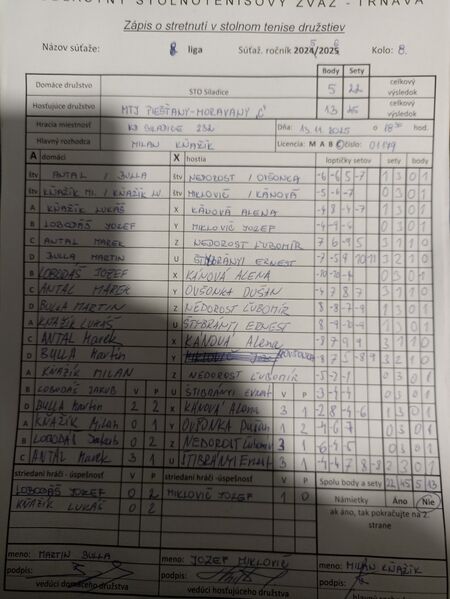 OBLASTNÝ STOLNOTENISOVÝ ZVÄZ - TRNAVA
Zápis o stretnutí v stolnom tenise družstiev
Názov súťaže: 8 liga Súťaž. ročník 2025/2026 Kolo: 8.
Body Sety
Domáce družstvo STO Siladice 5 22 celkový výsledok
Hosťujúce družstvo MTJ PIEŠŤANY-MORAVANY 13 45 celkový výsledok
Hracia miestnosť KD SILADICE 232 Dňa: 13.11.2025 o 18 30 hod.
Hlavný rozhodca MILAN KŇAŽÍK Licencia: M A B C číslo:
A domáci X hostia loptičky setov sety body
štv ANTAL / BULLA štv NEDOROST / DUŠONKA -6 -6 5 -7 1 3 0 1
štv KŇAŽÍK MI. / KŇAŽÍK LU. štv MIKLOVIČ / KÁNOVÁ -5 -6 -7 0 3 0 1
A KŇAŽÍK LUKÁŠ X KÁNOVÁ ALENA -4 8 -4 -7 1 3 0 1
B LOBODÁŠ JOZEF Y MIKLOVIČ JOZEF 0 3 0 1
C ANTAL MAREK Z NEDOROST ĽUBOMÍR 7 6 -9 5 3 1 1 0
D BULLA MARTIN U ŠTIBRÁNYI ERNEST 3 2 1 0
B LOBODÁŠ JOZEF X KÁNOVÁ ALENA -10 -10 -4 0 3 0 1
C ANTAL MAREK Y DUŠONKA DUŠAN -4 7 8 7 3 1 1 0
D BULLA MARTIN Z NEDOROST ĽUBOMÍR 1 3 0 1
A KŇAŽÍK LUKÁŠ U ŠTIBRÁNYI ERNEST 0 3 0 1
C ANTAL Marek X KÁNOVÁ Alena 3 1 1 0
D BULLA Martin Y DUŠONKA 3 2 1 0
A KŇAŽÍK MILAN Z NEDOROST ĽUBOMÍR 0 3 0 1
B LOBODÁŠ JAKUB V P U ŠTIBRÁNYI V P 0 3 0 1
D BULLA Martin 2 2 X KÁNOVÁ Alena 3 1 -2 8 -4 -6 1 3 0 1
A KŇAŽÍK Milan 0 1 Y DUŠONKA Dušan 1 2 1 3 0 1
B LOBODÁŠ Jakub 0 2 Z NEDOROST 3 1 0 3 0 1
C ANTAL Marek 3 1 U ŠTIBRÁNYI 3 1 2 3 0 1
striedaní hráči - úspešnosť V P striedaní hráči - úspešnosť V P Spolu body a sety 22 45 5 13
LOBODÁŠ JOZEF 0 2 MIKLOVIČ JOZEF 1 0 Námietky Áno Nie
KŇAŽÍK LUKÁŠ 0 2 ak áno, tak pokračujte na 2. strane
meno: MARTIN BULLA meno: JOZEF MIKLOVIČ meno: MILAN KŇAŽÍK
podpis: podpis: podpis:
vedúci domáceho družstva vedúci hosťujúceho družstva hlavný